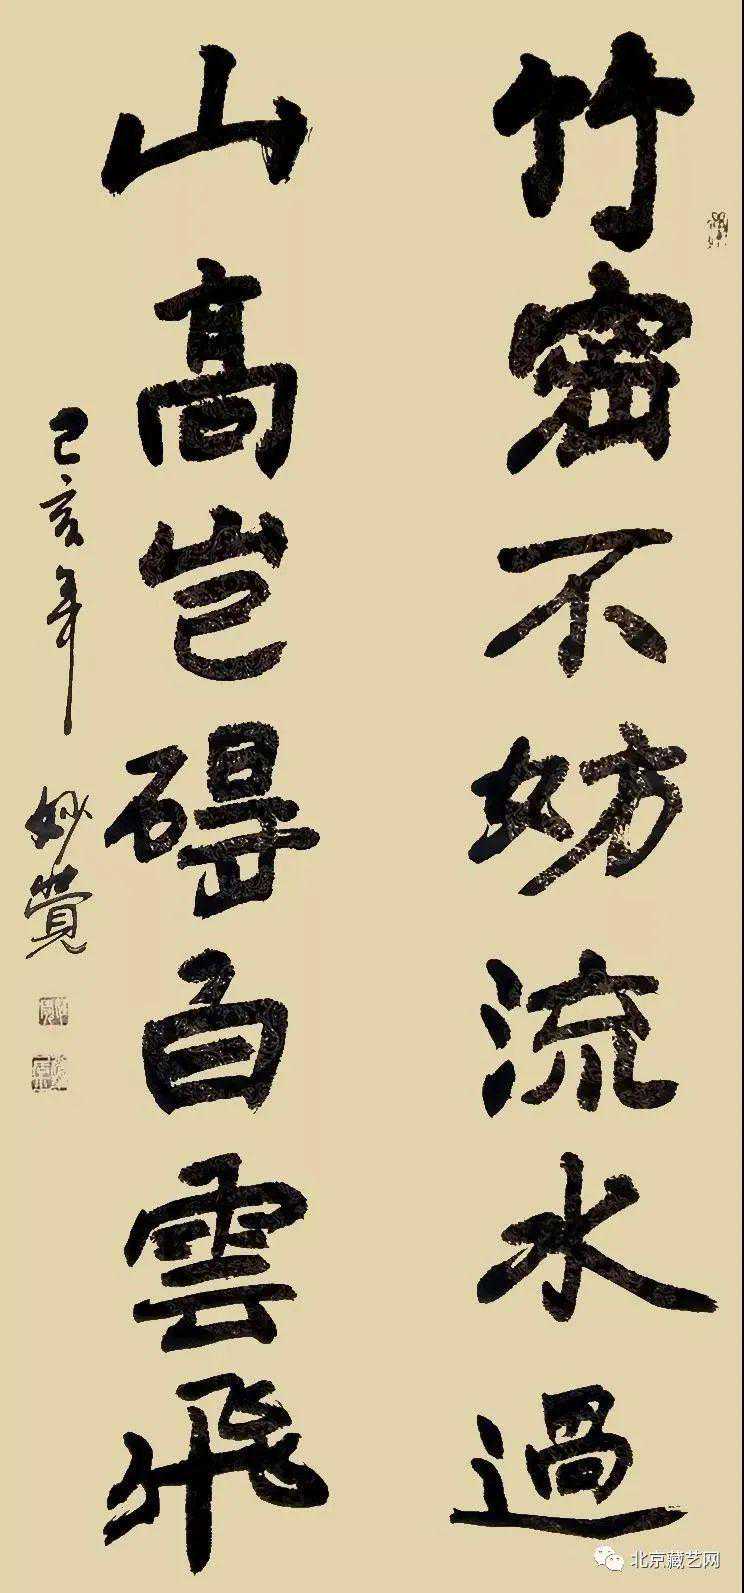 竹密不妨流水過
山高岂碍白雲飛
己亥年 妙覺
北京藏艺网